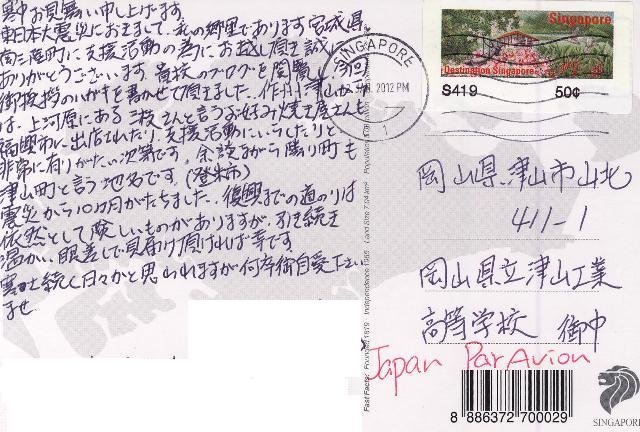 寒中お見舞い申し上げます
東日本大震災におきまして、私の郷里であります宮城県
南三陸町に支援活動の為にお越し頂き誠に
ありがとうございます 貴校のブログを閲覧し
御挨拶のハガキを書かせて頂きました。作州津山
は、上河原にある三枝さんと言うお好み焼き屋さんも
福興市に出店されたり、支援活動にいらしたりと
非常に有りがたい次第です。余談ながら隣り町も
津山町と言う地名です。(登米市)
震災から10カ月がたちました。復興までの道のりは
依然として険しいものがありますが、引き続き
温かい眼差しで見届け頂ければ幸です
寒さ続く日々かと思われますが何卒御自愛下さい
ませ
SINGAPORE
2012 PM
1
Singapore
Destination Singapore
S419
50¢
岡山県津山市山北
411-1
岡山県立津山工業
高等学校 御中
Japan Par Avion
Fast Facts: Founded 1819 · Independence 1965 · Land Size 704 km²
8 886372 700029
SINGAPORE